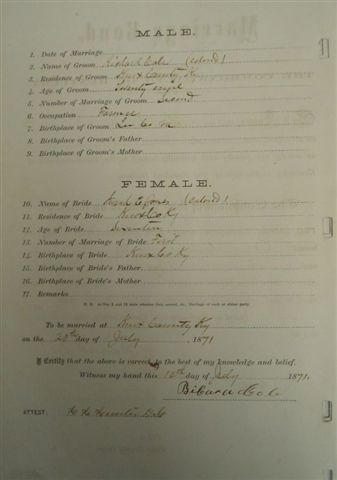 MALE.
1. Date of Marriage
2. Name of Groom Richard Cole (colored)
3. Residence of Groom Knox County, Ky
4. Age of Groom Twenty eight
5. Number of Marriage of Groom Second
6. Occupation Farmer
7. Birthplace of Groom Lee Co Va
8. Birthplace of Groom's Father
9. Birthplace of Groom's Mother
FEMALE.
10. Name of Bride Jones (colored)
11. Residence of Bride Knox Co Ky
12. Age of Bride Seventeen
13. Number of Marriage of Bride First
14. Birthplace of Bride Knox Co Ky
15. Birthplace of Bride's Father
16. Birthplace of Bride's Mother
17. Remarks
To be married at Knox County Ky
on the 20th day of July 1871
I Certify that the above is correct, to the best of my knowledge and belief.
Witness my hand this day of July 1871.
Richard Cole
ATTEST.